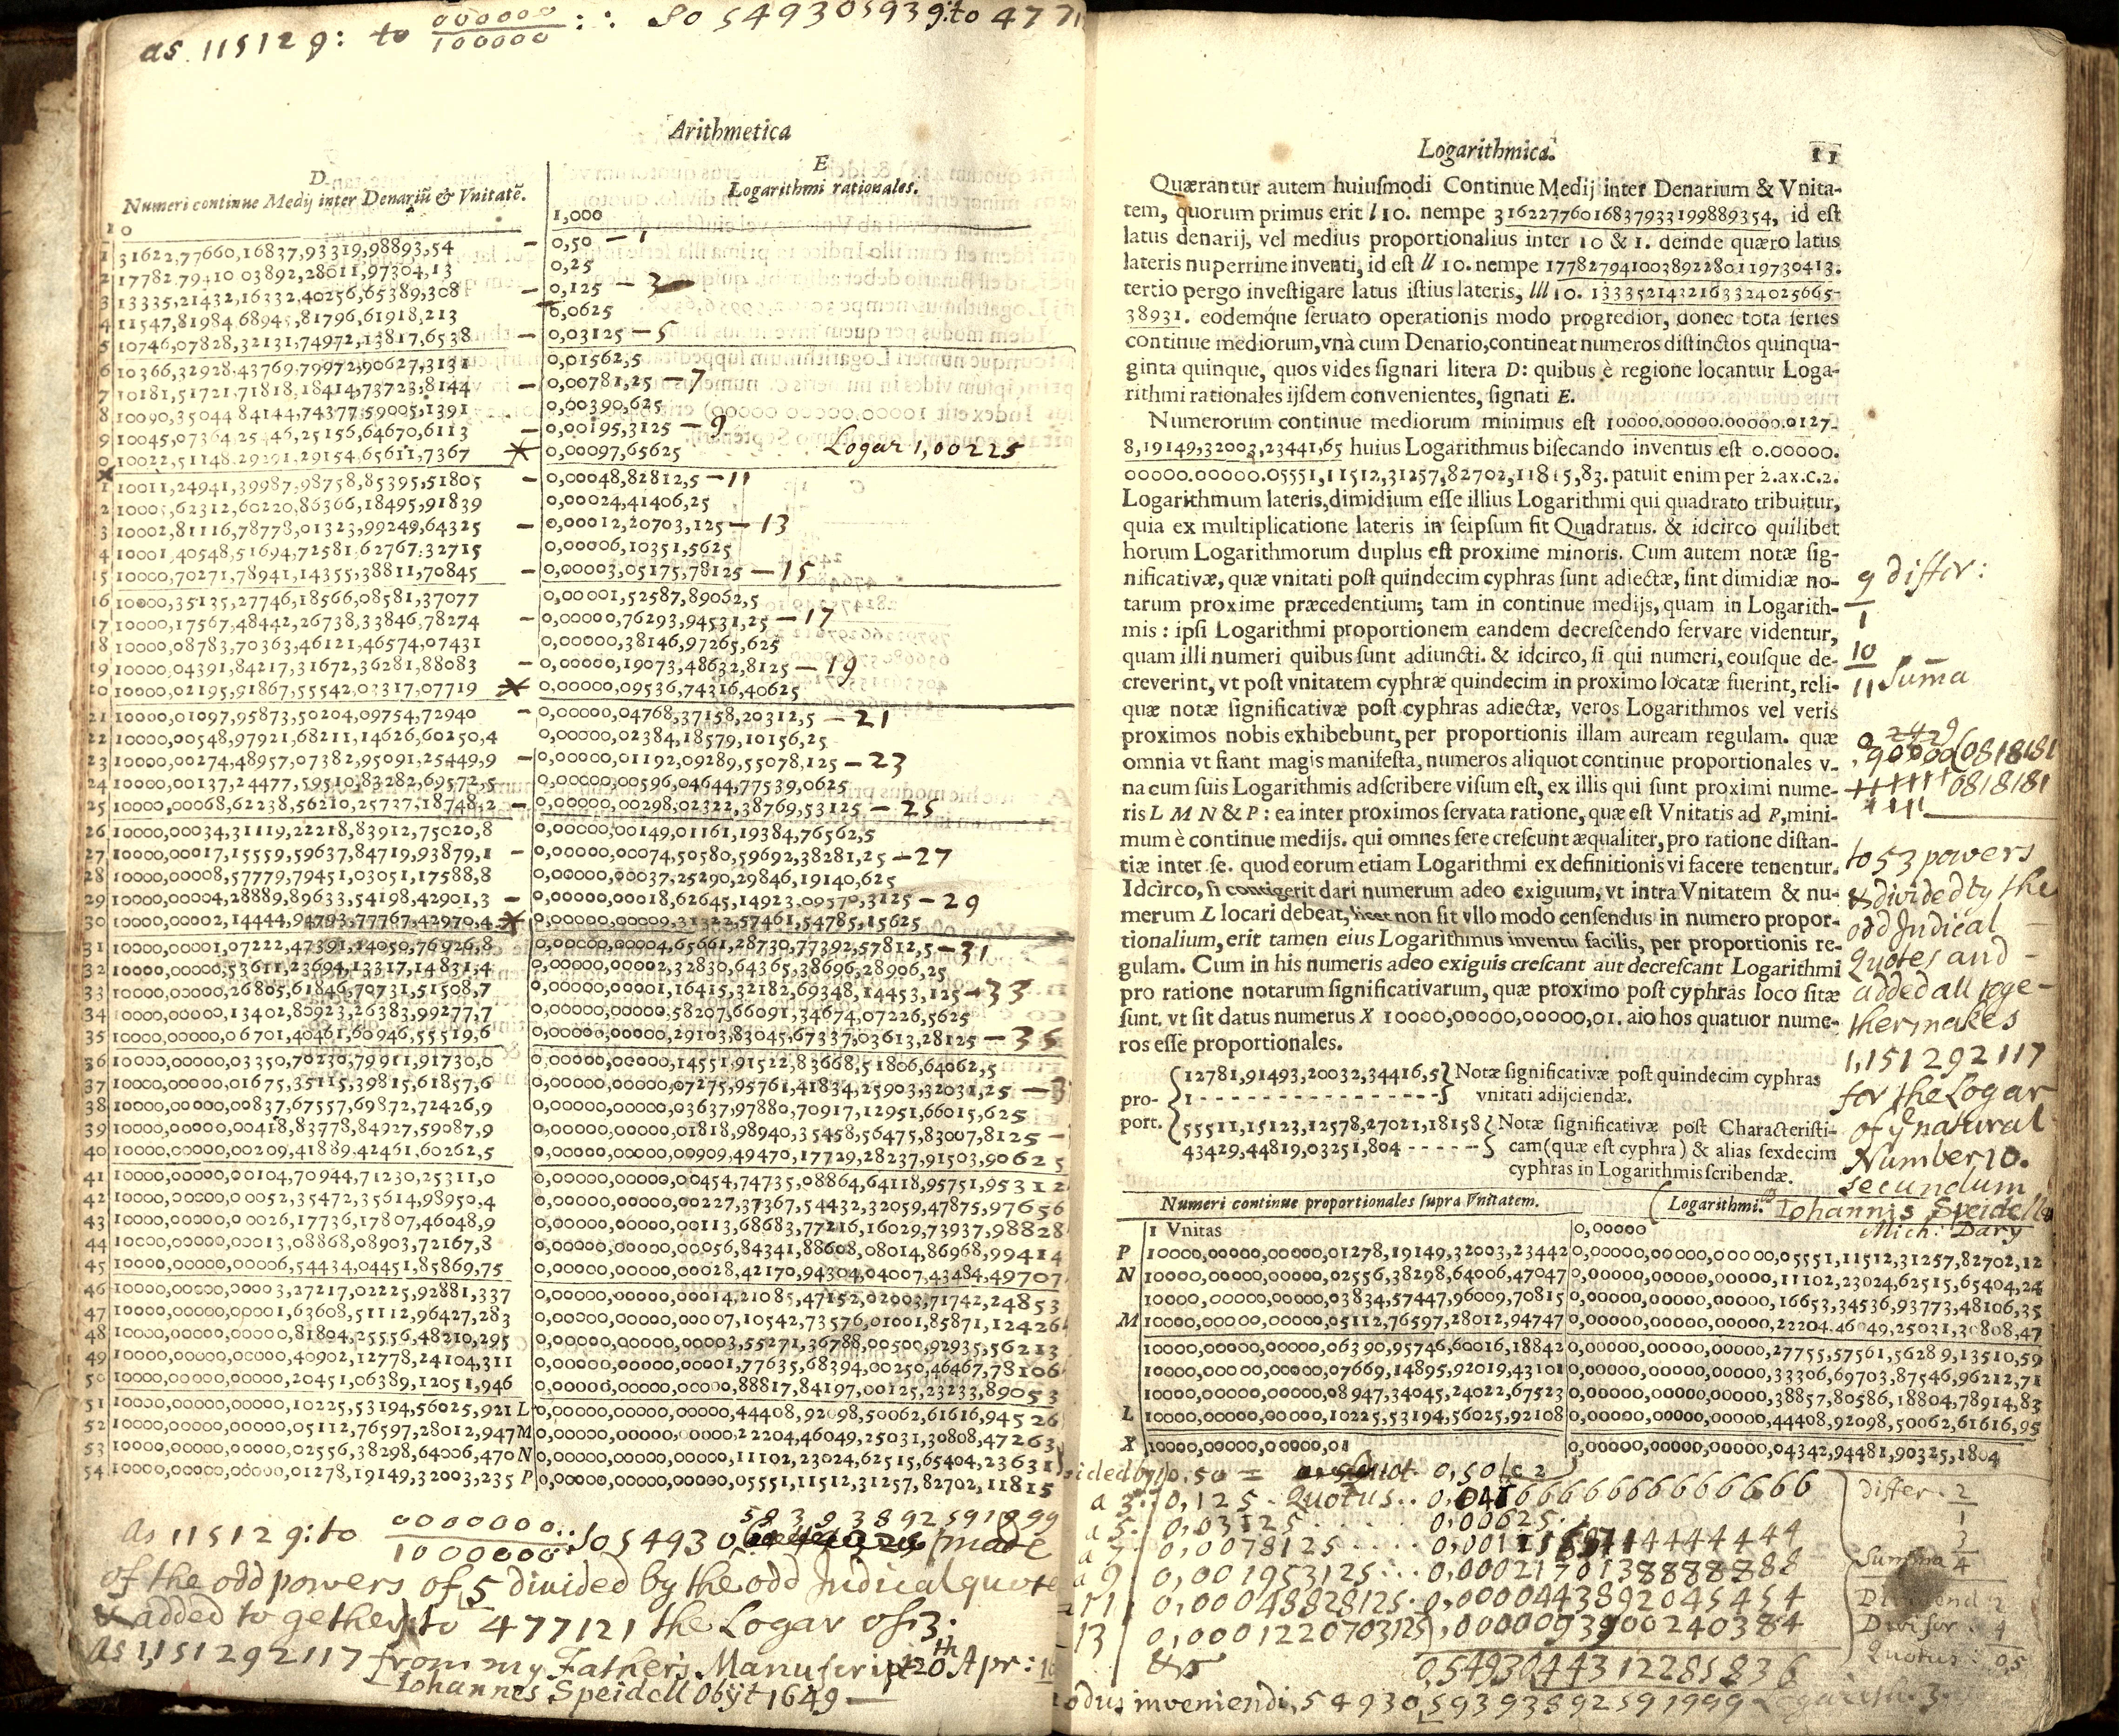 as 11512 9: to 000000/100000 : : So 549305939: to 4771
Arithmetica
D
Numeri continue Medij inter Denariũ & Vnitatẽ.
E
Logarithmi rationales.
10 1,000
1 31622,77660,16837,93319,98893,54 – 0,50 – 1
2 17782,79410 03892,28011,97304,13 0,25
3 13335,21432,16332,40256,65389,308 – 0,125 – 3
4 11547,81984 68945,81796,61918,213 0,0625
5 10746,07828,32131,74972,13817,6538 – 0,03125 – 5
6 10366,32928,43769,79972,90627,3131 0,01562,5
7 10181,51721,71818,18414,73723,8144 – 0,00781,25 – 7
8 10090,35044 84144,74377,59005,1391 0,00390,625
9 10045,07364 25446,25156,64670,6113 – 0,00195,3125 – 9
0 10022,51148,29291,29154,65611,7367 * 0,00097,65625 Logar 1,00225
1 10011,24941,39987,98758,85395,51805 – 0,00048,82812,5 – 11
2 10005,62312,60220,86366,18495,91839 0,00024,41406,25
3 10002,81116,78778,01323,99249,64325 – 0,00012,20703,125 – 13
4 10001,40548,51694,72581,62767,32715 0,00006,10351,5625
15 10000,70271,78941,14355,38811,70845 – 0,00003,05175,78125 – 15
16 10000,35135,27746,18566,08581,37077 0,00001,52587,89062,5
17 10000,17567,48442,26738,33846,78274 – 0,00000,76293,94531,25 – 17
18 10000,08783,70363,46121,46574,07431 0,00000,38146,97265,625
19 10000,04391,84217,31672,36281,88083 – 0,00000,19073,48632,8125 – 19
20 10000,02195,91867,55542,03317,07719 * 0,00000,09536,74316,40625
21 10000,01097,95873,50204,09754,72940 – 0,00000,04768,37158,20312,5 – 21
22 10000,00548,97921,68211,14626,60250,4 0,00000,02384,18579,10156,25
23 10000,00274,48957,07382,95091,25449,9 – 0,00000,01192,09289,55078,125 – 23
24 10000,00137,24477,59510,83282,69572,5 0,00000,00596,04644,77539,0625
25 10000,00068,62238,56210,25737,18748,2 – 0,00000,00298,02322,38769,53125 – 25
26 10000,00034,31119,22218,83912,75020,8 0,00000,00149,01161,19384,76562,5
27 10000,00017,15559,59637,84719,93879,1 – 0,00000,00074,50580,59692,38281,25 – 27
28 10000,00008,57779,79451,03051,17588,8 0,00000,00037,25290,29846,19140,625
29 10000,00004,28889,89633,54198,42901,3 – 0,00000,00018,62645,14923,09570,3125 – 29
30 10000,00002,14444,94793,77767,42970,4 * 0,00000,00009,31322,57461,54785,15625
31 10000,00001,07222,47391,14050,76926,8 0,00000,00004,65661,28730,77392,57812,5 – 31
32 10000,00000,53611,23694,13317,14831,4 0,00000,00002,32830,64365,38696,28906,25
33 10000,00000,26805,61846,70731,51508,7 0,00000,00001,16415,32182,69348,14453,125 – 33
34 10000,00000,13402,80923,26383,99277,7 0,00000,00000,58207,66091,34674,07226,5625
35 10000,00000,06701,40461,60946,55519,6 0,00000,00000,29103,83045,67337,03613,28125 – 35
36 10000,00000,03350,70230,79911,91730,0 0,00000,00000,14551,91522,83668,51806,64062,5
37 10000,00000,01675,35115,39815,61857,6 0,00000,00000,07275,95761,41834,25903,32031,25 – 3
38 10000,00000,00837,67557,69872,72426,9 0,00000,00000,03637,97880,70917,12951,66015,625
39 10000,00000,00418,83778,84927,59087,9 0,00000,00000,01818,98940,35458,56475,83007,8125 –
40 10000,00000,00209,41889,42461,60262,5 0,00000,00000,00909,49470,17729,28237,91503,90625
41 10000,00000,00104,70944,71230,25311,0 0,00000,00000,00454,74735,08864,64118,95751,95312
42 10000,00000,00052,35472,35614,98950,4 0,00000,00000,00227,37367,54432,32059,47875,97656
43 10000,00000,00026,17736,17807,46048,9 0,00000,00000,00113,68683,77216,16029,73937,98828
44 10000,00000,00013,08868,08903,72167,8 0,00000,00000,00056,84341,88608,08014,86968,99414
45 10000,00000,00006,54434,04451,85869,75 0,00000,00000,00028,42170,94304,04007,43484,49707
46 10000,00000,00003,27217,02225,92881,337 0,00000,00000,00014,21085,47152,02003,71742,24853
47 10000,00000,00001,63608,51112,96427,283 0,00000,00000,00007,10542,73576,01001,85871,12426
48 10000,00000,00000,81804,25556,48210,295 0,00000,00000,00003,55271,36788,00500,92935,56213
49 10000,00000,00000,40902,12778,24104,311 0,00000,00000,00001,77635,68394,00250,46467,78106
50 10000,00000,00000,20451,06389,12051,946 0,00000,00000,00000,88817,84197,00125,23233,89053
51 10000,00000,00000,10225,53194,56025,921 L 0,00000,00000,00000,44408,92098,50062,61616,94526
52 10000,00000,00000,05112,76597,28012,947 M 0,00000,00000,00000,22204,46049,25031,30808,47263
53 10000,00000,00000,02556,38298,64006,470 N 0,00000,00000,00000,11102,23024,62515,65404,23631
54 10000,00000,00000,01278,19149,32003,235 P 0,00000,00000,00000,05551,11512,31257,82702,11815
59393892591999
As 115129: to 0000000/1000000 :: So 54930 (made
of the odd powers of ,5 divided by the odd Indical quote
& added to gether) to 477121 the Logar of 3.
As 1,151292117 from my Fathers Manuscript 20th Apr: 1
Iohannes Speidell Obijt 1649
Logarithmica. 11
Quærantur autem huiusmodi Continue Medij inter Denarium & Vnita-
tem, quorum primus erit l 10. nempe 316227760168379331998893 54, id est
latus denarij, vel medius proportionalius inter 10 & 1. deinde quæro latus
lateris nuperrime inventi, id est ll 10. nempe 177827941003892280119730413.
tertio pergo investigare latus istius lateris, lll 10. 1333521432163324025665-
38931. eodemq́ue seruato operationis modo progredior, donec tota series
continue mediorum, vnà cum Denario, contineat numeros distinctos quinqua-
ginta quinque, quos vides signari litera D: quibus è regione locantur Loga-
rithmi rationales ijsdem convenientes, signati E.
Numerorum continue mediorum minimus est 10000.00000.00000.0127-
8,19149,32003,23441,65 huius Logarithmus bisecando inventus est 0.00000.
00000.00000.05551,11512,31257,82702,11815,83. patuit enim per 2.ax.c.2.
Logarithmum lateris, dimidium esse illius Logarithmi qui quadrato tribuitur,
quia ex multiplicatione lateris in seipsum fit Quadratus. & idcirco quilibet
horum Logarithmorum duplus est proxime minoris. Cum autem notæ sig-
nificativæ, quæ vnitati post quindecim cyphras sunt adiectæ, sint dimidiæ no-
tarum proxime præcedentium; tam in continue medijs, quam in Logarith-
mis : ipsi Logarithmi proportionem eandem decrescendo servare videntur,
quam illi numeri quibus sunt adiuncti. & idcirco, si qui numeri, eousque de-
creverint, vt post vnitatem cyphræ quindecim in proximo locatæ fuerint, reli-
quæ notæ significativæ post cyphras adiectæ, veros Logarithmos vel veris
proximos nobis exhibebunt, per proportionis illam auream regulam. quæ
omnia vt fiant magis manifesta, numeros aliquot continue proportionales v-
na cum suis Logarithmis adscribere visum est, ex illis qui sunt proximi nume-
ris L M N & P : ea inter proximos servata ratione, quæ est Vnitatis ad P, mini-
mum è continue medijs. qui omnes fere crescunt æqualiter, pro ratione distan-
tiæ inter se. quod eorum etiam Logarithmi ex definitionis vi facere tenentur.
Idcirco, si contigerit dari numerum adeo exiguum, vt intra Vnitatem & nu-
merum L locari debeat, licet non sit vllo modo censendus in numero propor-
tionalium, erit tamen eius Logarithmus inventu facilis, per proportionis re-
gulam. Cum in his numeris adeo exiguis crescant aut decrescant Logarithmi
pro ratione notarum significativarum, quæ proximo post cyphras loco sitæ
sunt. vt sit datus numerus X 10000,00000,00000,01. aio hos quatuor nume-
ros esse proportionales.
pro-
port.
12781,91493,20032,34416,5 Notæ significativæ post quindecim cyphras
1 - - - - - - - - - - - - - - - - vnitati adijciendæ.
55511,15123,12578,27021,18158 Notæ significativæ post Characteristi-
43429,44819,03251,804 - - - - - cam (quæ est cyphra) & alias sexdecim
cyphras in Logarithmis scribendæ.
9 differ:
1
10
11 Sum̃a
90000(0818181
0818181
to 53 powers
& divided by the
odd Indical
Quotes and
added all toge-
ther makes
1,151292117
for the Logar
of ye natural
Number 10.
secundum
Iohannis Speidell
Mich: Dary
Numeri continue proportionales supra Vnitatem. Logarithmi.
1 Vnitas 0,00000
P 10000,00000,00000,01278,19149,32003,23442 0,00000,00000,00000,05551,11512,31257,82702,12
N 10000,00000,00000,02556,38298,64006,47047 0,00000,00000,00000,11102,23024,62515,65404,24
10000,00000,00000,03834,57447,96009,70815 0,00000,00000,00000,16653,34536,93773,48106,35
M 10000,00000,00000,05112,76597,28012,94747 0,00000,00000,00000,22204,46049,25031,30808,47
10000,00000,00000,06390,95746,60016,18842 0,00000,00000,00000,27755,57561,56289,13510,59
10000,00000,00000,07669,14895,92019,43101 0,00000,00000,00000,33306,69703,87546,96212,71
10000,00000,00000,08947,34045,24022,67523 0,00000,00000,00000,38857,80586,18804,78914,83
L 10000,00000,00000,10225,53194,56025,92108 0,00000,00000,00000,44408,92098,50062,61616,95
X 10000,00000,00000,01 0,00000,00000,00000,04342,94481,90325,1804
ided by 1) 0,50 = Quot 0,50
a 3: 0,125 . Quotus .. 0,0416666666666666
a 5. 0,03125 . . . . 0,00625
a 7 0,0078125 . . . .
a 9 0,001953125 : . . 0,00021701388888888
11 0,00048828125 . 0,0000443892045454
13 0,0001220703125) ,0000093900240384
0,5493044312285836
odus inveniendi ,54930,5939389259 1999 Logarith. 3
differ . 2
1
3
Summa 4
Dividend 2
Divisor . 4
Quotus : 0,5